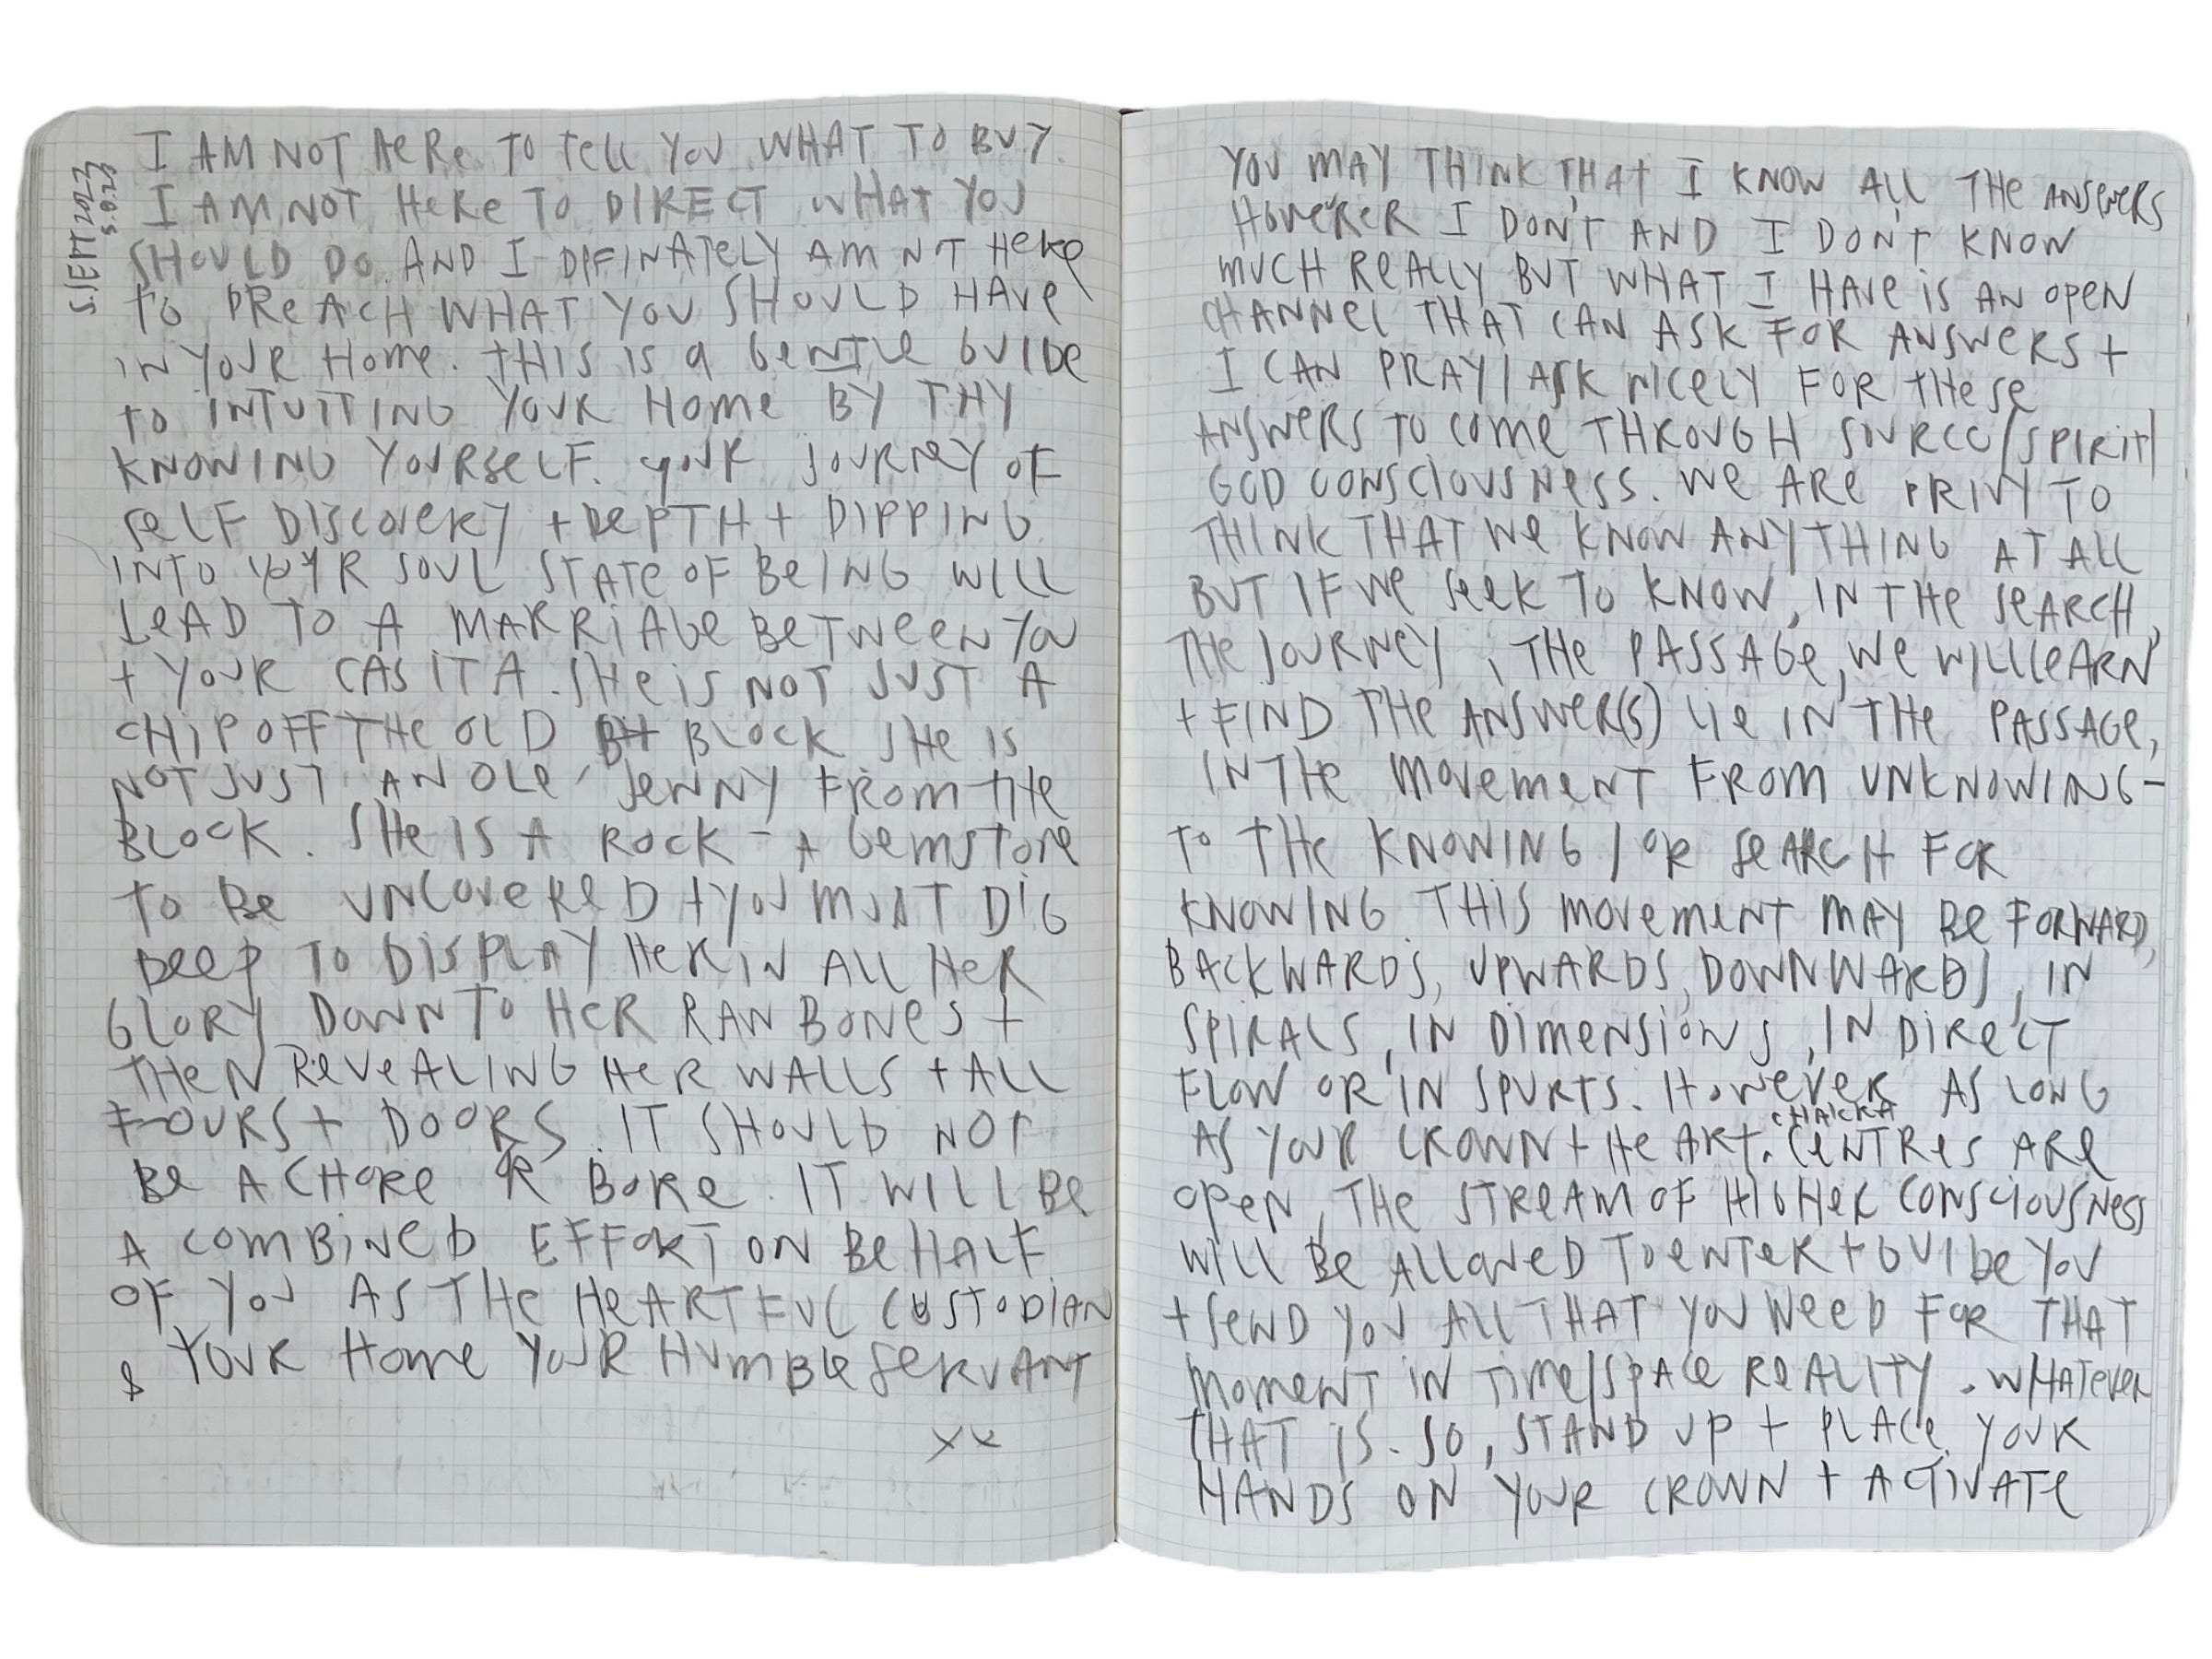 5. SEPT 2023
5.9.23
I AM NOT HERE TO TELL YOU WHAT TO BUY.
I AM NOT HERE TO DIRECT WHAT YOU
SHOULD DO AND I DEFINATELY AM NOT HERE
TO PREACH WHAT YOU SHOULD HAVE
IN YOUR HOME. THIS IS A GENTLE GUIDE
TO INTUITING YOUR HOME BY THY
KNOWING YOURSELF. YOUR JOURNEY OF
SELF DISCOVERY + DEPTH + DIPPING
INTO YOUR SOUL STATE OF BEING WILL
LEAD TO A MARRIAGE BETWEEN YOU
+ YOUR CASITA. SHE IS NOT JUST A
CHIP OFF THE OLD BLOCK SHE IS
NOT JUST AN OLE' JENNY FROM THE
BLOCK. SHE IS A ROCK - A GEMSTONE
TO BE UNCOVERED + YOU MUST DIG
DEEP TO DISPLAY HER IN ALL HER
GLORY DOWN TO HER RAW BONES +
THEN REVEALING HER WALLS + ALL
FOURS + DOORS. IT SHOULD NOT
BE A CHORE OR BORE. IT WILL BE
A COMBINED EFFORT ON BEHALF
OF YOU AS THE HEARTFUL CUSTODIAN
& YOUR HOME YOUR HUMBLE SERVANT
xx
YOU MAY THINK THAT I KNOW ALL THE ANSWERS
HOWEVER I DON'T AND I DON'T KNOW
MUCH REALLY BUT WHAT I HAVE IS AN OPEN
CHANNEL THAT CAN ASK FOR ANSWERS +
I CAN PRAY/ASK NICELY FOR THESE
ANSWERS TO COME THROUGH SOURCE/SPIRIT/
GOD CONSCIOUSNESS. WE ARE PRIVY TO
THINK THAT WE KNOW ANYTHING AT ALL
BUT IF WE SEEK TO KNOW, IN THE SEARCH,
THE JOURNEY, THE PASSAGE, WE WILL LEARN
+ FIND THE ANSWER(S) LIE IN THE PASSAGE,
IN THE MOVEMENT FROM UNKNOWING-
TO THE KNOWING / OR SEARCH FOR
KNOWING. THIS MOVEMENT MAY BE FORWARD,
BACKWARDS, UPWARDS, DOWNWARDS, IN
SPIRALS, IN DIMENSIONS, IN DIRECT
FLOW OR IN SPURTS. HOWEVER AS LONG
AS YOUR CROWN + HEART CHACKRA CENTRES ARE
OPEN, THE STREAM OF HIGHER CONSCIOUSNESS
WILL BE ALLOWED TO ENTER + GUIDE YOU
+ SEND YOU ALL THAT YOU NEED FOR THAT
MOMENT IN TIME/SPACE REALITY. WHATEVER
THAT IS. SO, STAND UP + PLACE YOUR
HANDS ON YOUR CROWN + ACTIVATE